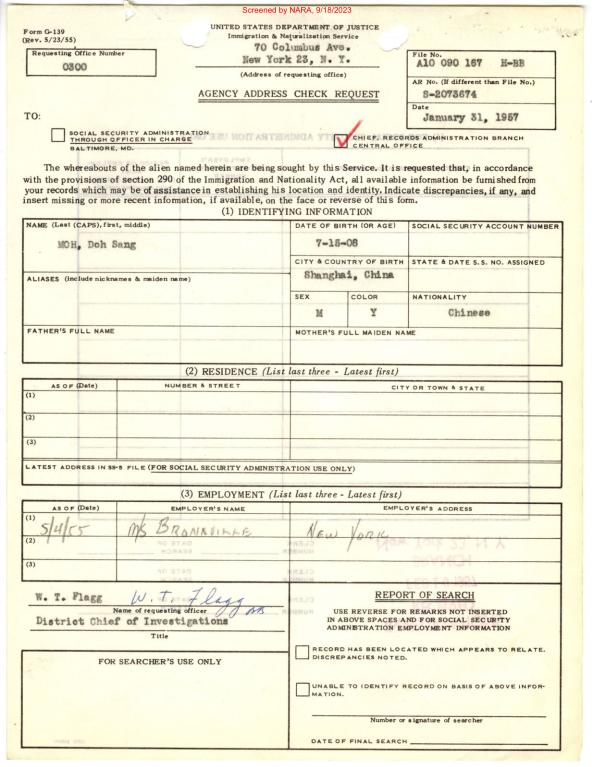 Screened by NARA, 9/18/2023
Form G-139
(Rev. 5/23/55)
UNITED STATES DEPARTMENT OF JUSTICE
Immigration & Naturalization Service
70 Columbus Ave.
New York 23, N. Y.
(Address of requesting office)
Requesting Office Number
0300
File No.
A10 090 167 H-BB
AR No. (If different than File No.)
S-2073674
Date
January 31, 1957
AGENCY ADDRESS CHECK REQUEST
TO:
SOCIAL SECURITY ADMINISTRATION
THROUGH OFFICER IN CHARGE
BALTIMORE, MD.
CHIEF, RECORDS ADMINISTRATION BRANCH
CENTRAL OFFICE
The whereabouts of the alien named herein are being sought by this Service. It is requested that, in accordance
with the provisions of section 290 of the Immigration and Nationality Act, all available information be furnished from
your records which may be of assistance in establishing his location and identity. Indicate discrepancies, if any, and
insert missing or more recent information, if available, on the face or reverse of this form.
(1) IDENTIFYING INFORMATION
NAME (Last (CAPS), first, middle)
MOH, Doh Sang
DATE OF BIRTH (OR AGE)
7-15-08
SOCIAL SECURITY ACCOUNT NUMBER
CITY & COUNTRY OF BIRTH
Shanghai, China
STATE & DATE S.S. NO. ASSIGNED
ALIASES (Include nicknames & maiden name)
SEX
M
COLOR
Y
NATIONALITY
Chinese
FATHER'S FULL NAME
MOTHER'S FULL MAIDEN NAME
(2) RESIDENCE (List last three - Latest first)
AS OF (Date)
NUMBER & STREET
CITY OR TOWN & STATE
(1)
(2)
(3)
LATEST ADDRESS IN SS-5 FILE (FOR SOCIAL SECURITY ADMINISTRATION USE ONLY)
(3) EMPLOYMENT (List last three - Latest first)
AS OF (Date)
EMPLOYER'S NAME
EMPLOYER'S ADDRESS
(1) 5/4/55 M/S BRONXVILLE NEW YORK
(2)
(3)
W. T. Flagg W. T. Flagg
Name of requesting officer
District Chief of Investigations
Title
FOR SEARCHER'S USE ONLY
REPORT OF SEARCH
USE REVERSE FOR REMARKS NOT INSERTED
IN ABOVE SPACES AND FOR SOCIAL SECURITY
ADMINISTRATION EMPLOYMENT INFORMATION
RECORD HAS BEEN LOCATED WHICH APPEARS TO RELATE.
DISCREPANCIES NOTED.
UNABLE TO IDENTIFY RECORD ON BASIS OF ABOVE INFOR-
MATION.
Number or signature of searcher
DATE OF FINAL SEARCH